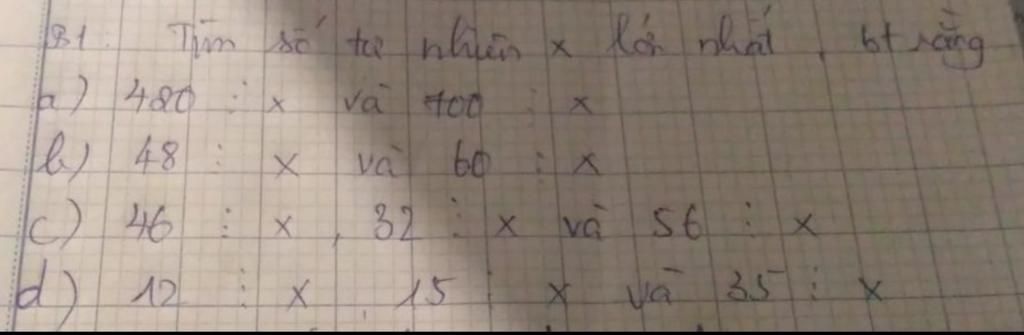 B1: Tìm số tự nhiên x lớn nhất, bt rằng
a) 480 ⋮ x và 700 ⋮ x
b) 48 ⋮ x và 60 ⋮ x
c) 46 ⋮ x, 32 ⋮ x và 56 ⋮ x
d) 12 ⋮ x, 15 ⋮ x và 35 ⋮ x